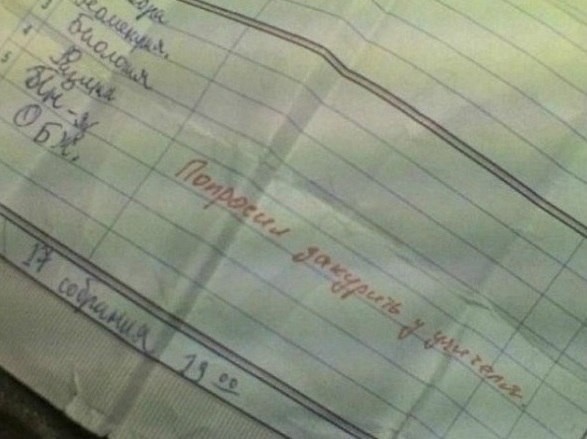 3 Геометрия.
4 Биология
5 Физика
ОБЖ.
Попросил закурить у учителя.
17 собрания 19 00